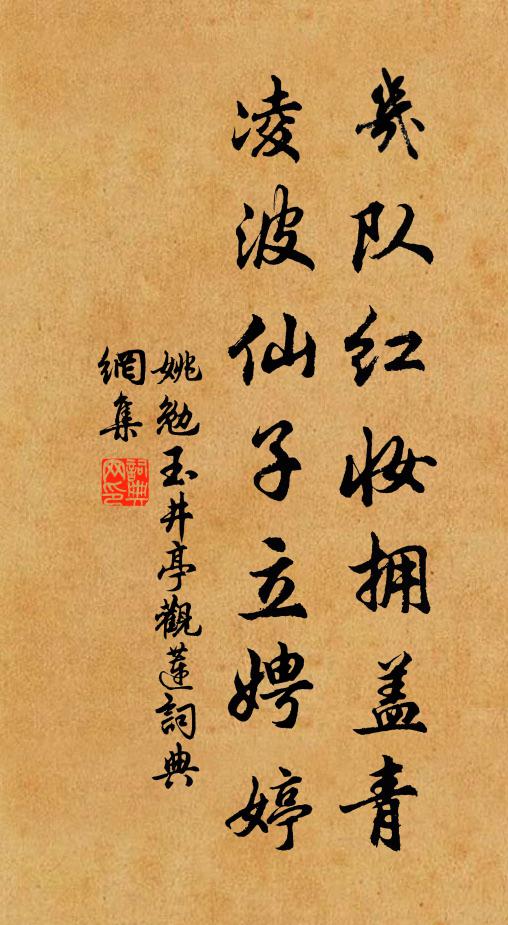 幾队红妆拥盖青
凌波仙子立娉婷
姚勉玉井亭觀蓮詞典
網集
詞典网印